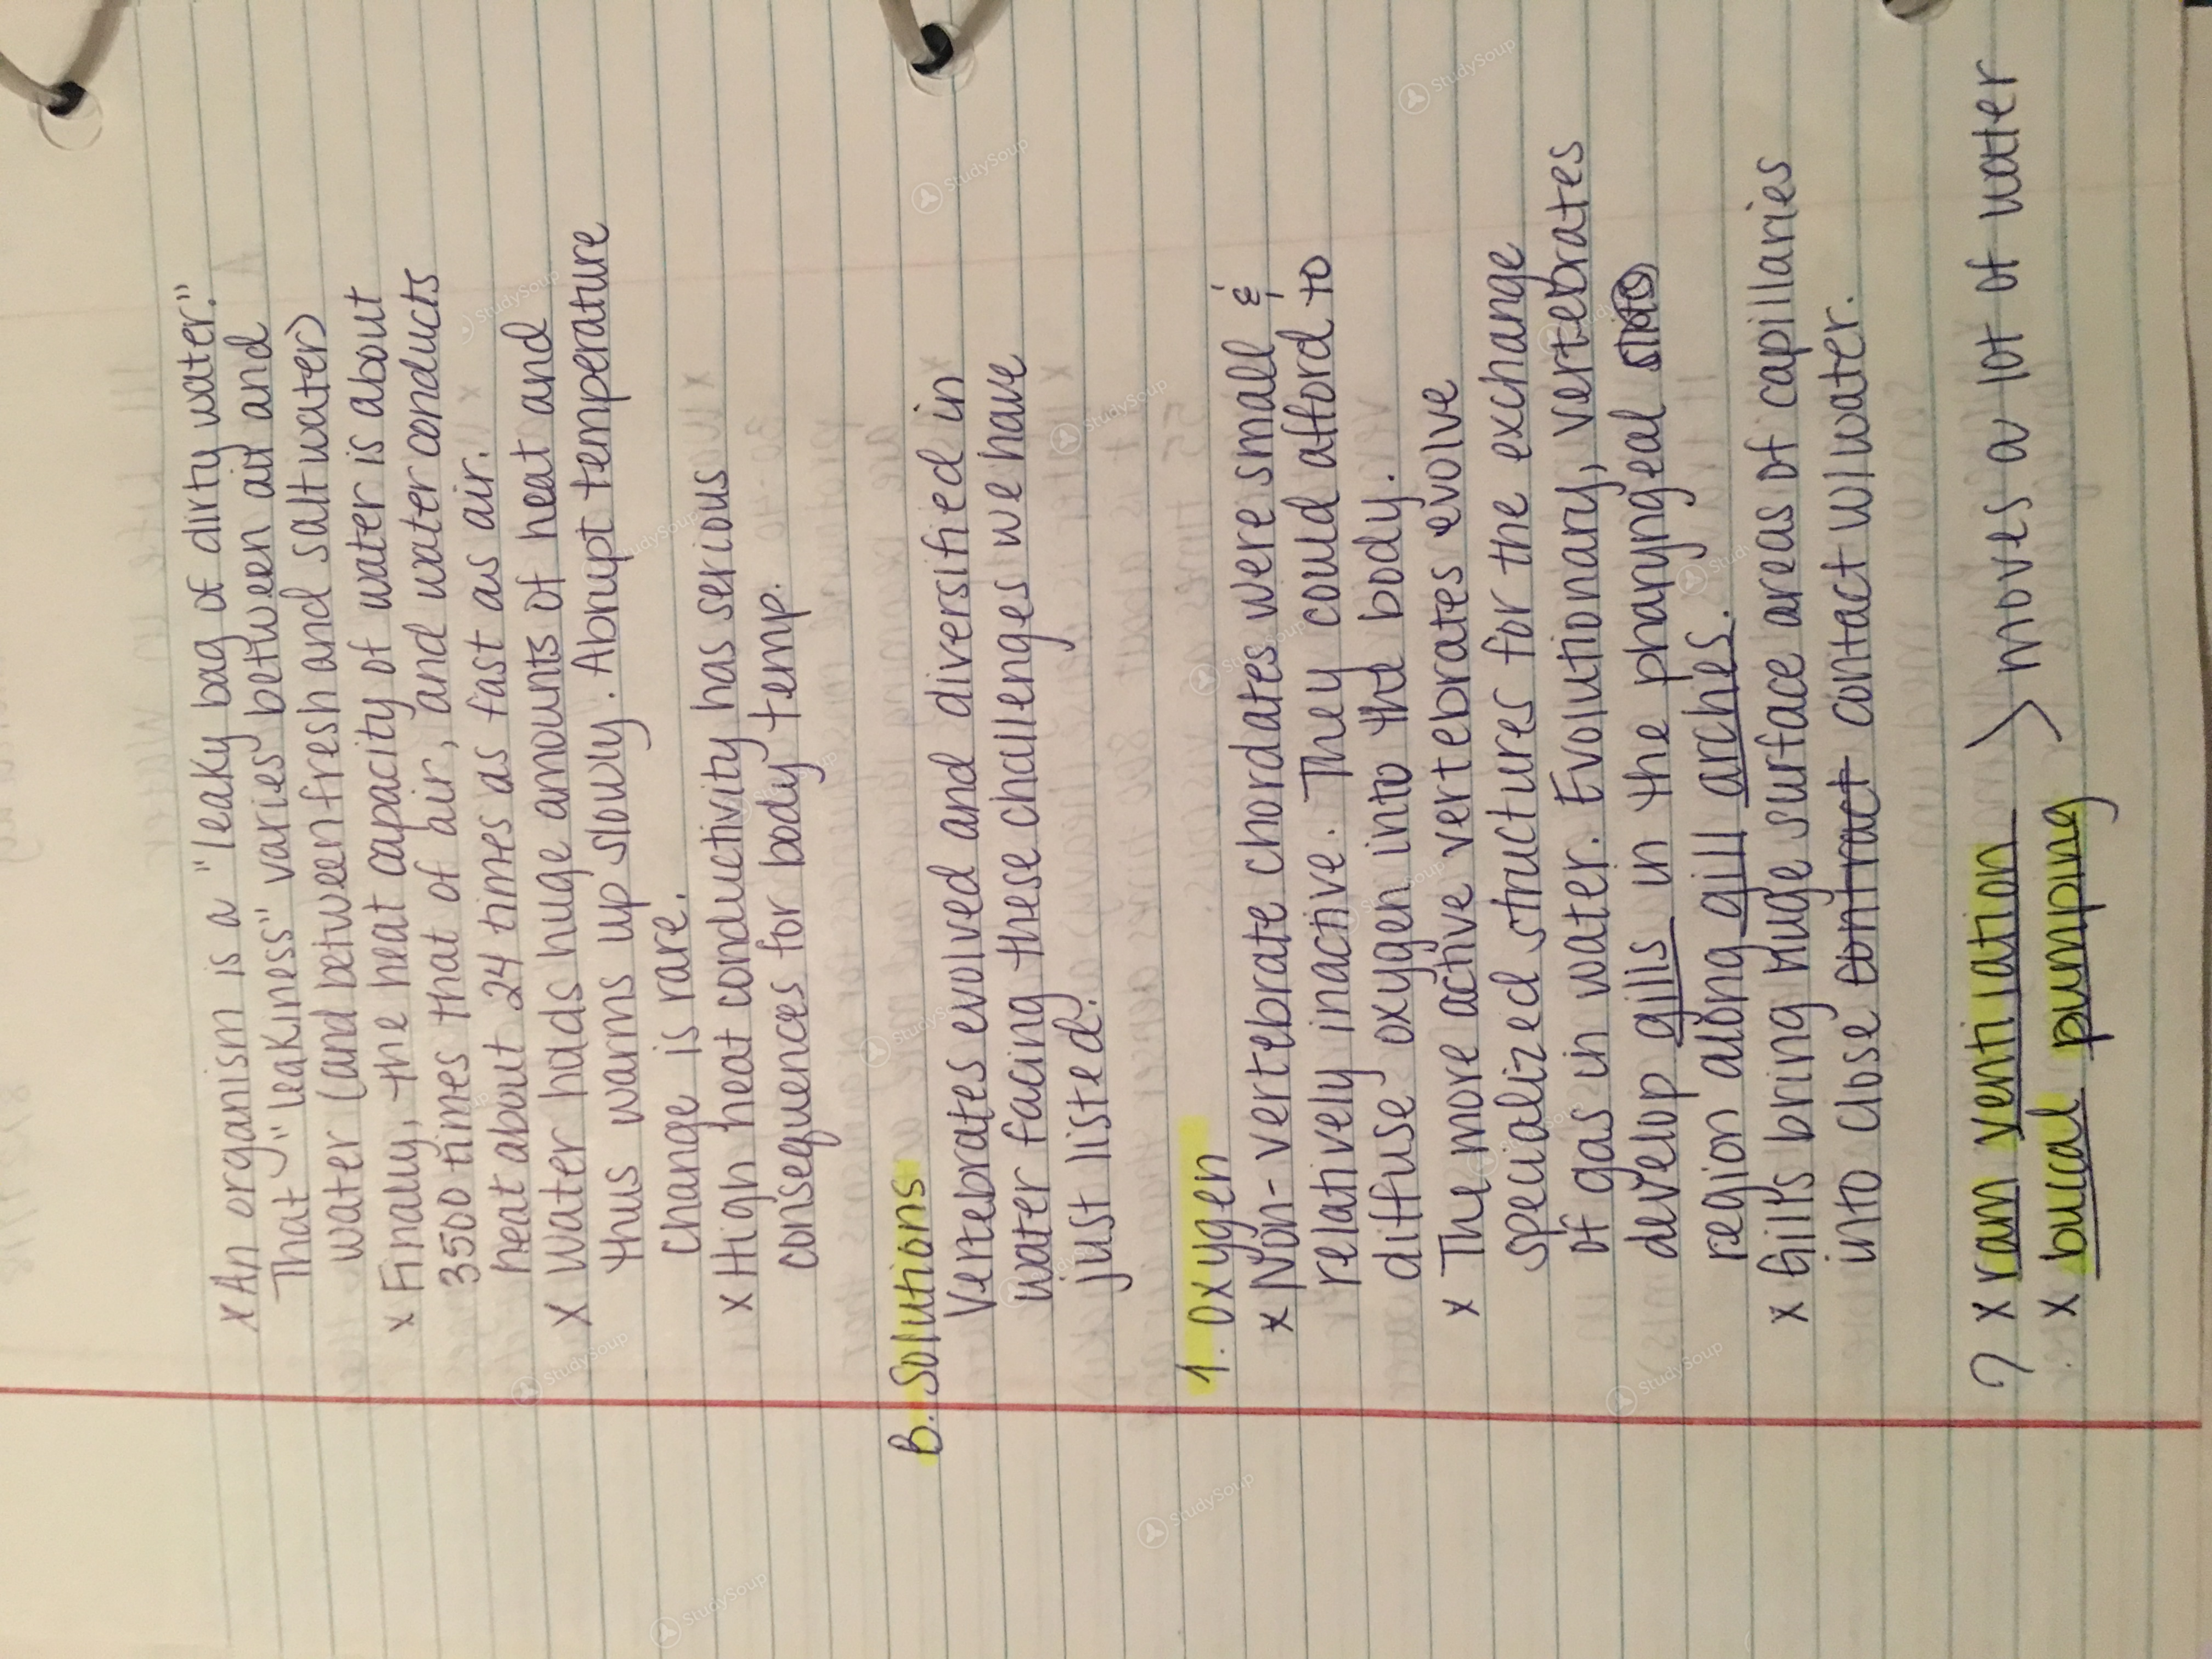 x An organism is a "leaky bag of dirty water."
That "leakiness" varies between air and
water (and between fresh and salt water)
x Finally, the heat capacity of water is about
3500 times that of air, and water conducts
heat about 24 times as fast as air.
x Water holds huge amounts of heat and
thus warms up slowly. Abrupt temperature
change is rare.
x High heat conductivity has serious
consequences for body temp.
B. Solutions
Vertebrates evolved and diversified in
water facing these challenges we have
just listed.
1. Oxygen
x Non-vertebrate chordates were small &
relatively inactive. They could afford to
diffuse oxygen into the body.
x The more active vertebrates evolve
specialized structures for the exchange
of gas in water. Evolutionary, vertebrates
develop gills in the pharyngeal
region along gill arches.
x Gills bring huge surface areas of capillaries
into close contract contact w/water.
? x ram ventilation > moves a lot of water
x buccal pumping
StudySoup